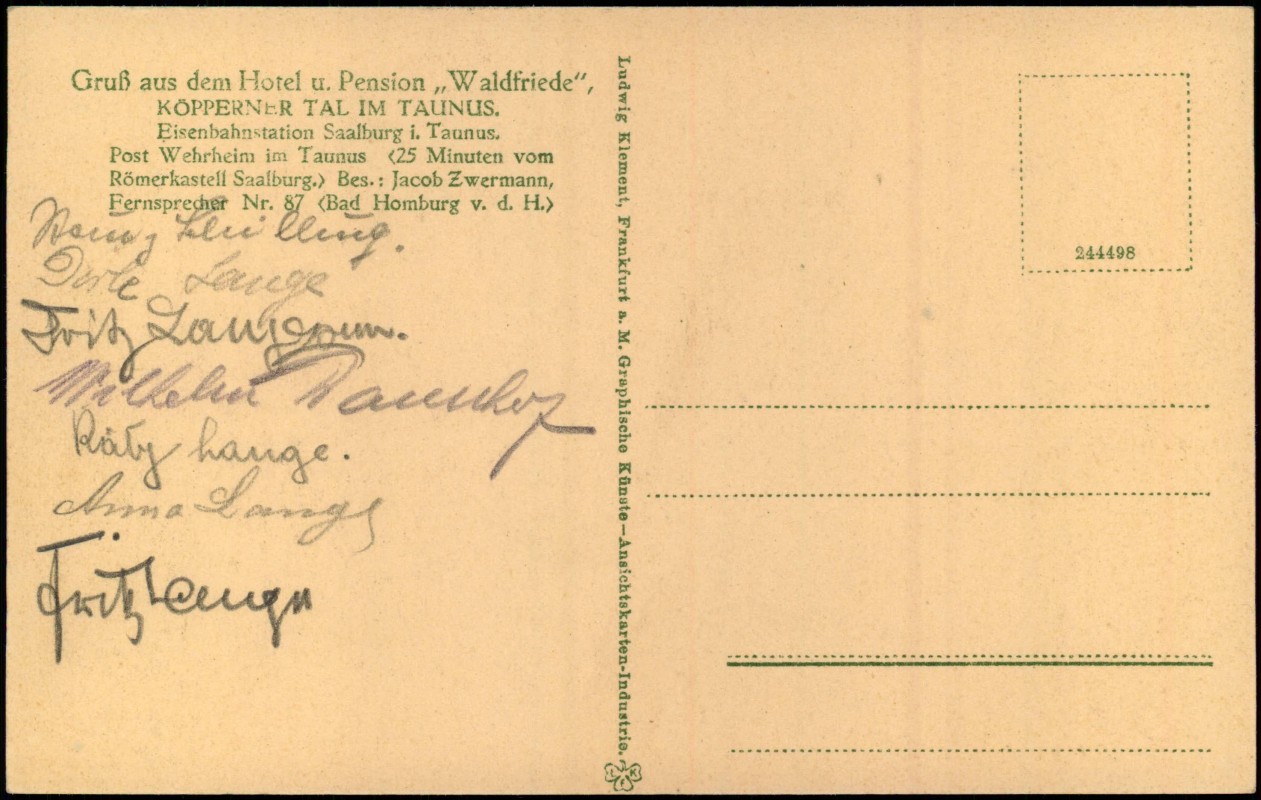 Gruß aus dem Hotel u. Pension „Waldfriede“,
KÖPPERNER TAL IM TAUNUS.
Eisenbahnstation Saalburg i. Taunus.
Post Wehrheim im Taunus (25 Minuten vom
Römerkastell Saalburg.) Bes.: Jacob Zwermann,
Fernsprecher Nr. 87 (Bad Homburg v. d. H.)
Lange
Fritz
Wilhelm
Käty Lange.
Anna Lange
Fritz Lange
Ludwig Klement, Frankfurt a. M. Graphische Künste—Ansichtskarten-Industrie.
L K F
244498